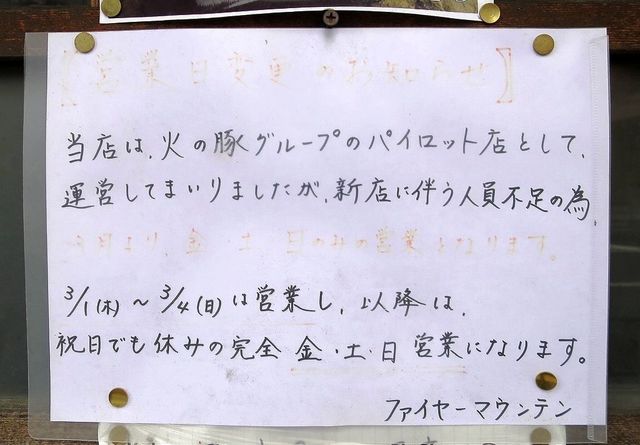 〖営業日変更のお知らせ〗
当店は、火の豚グループのパイロット店として、
運営してまいりましたが、新店に伴う人員不足の為、
月より 金・土・日のみの営業となります。
3/1(木)～3/4(日)は営業し、以降は、
祝日でも休みの完全 金・土・日 営業になります。
ファイヤーマウンテン